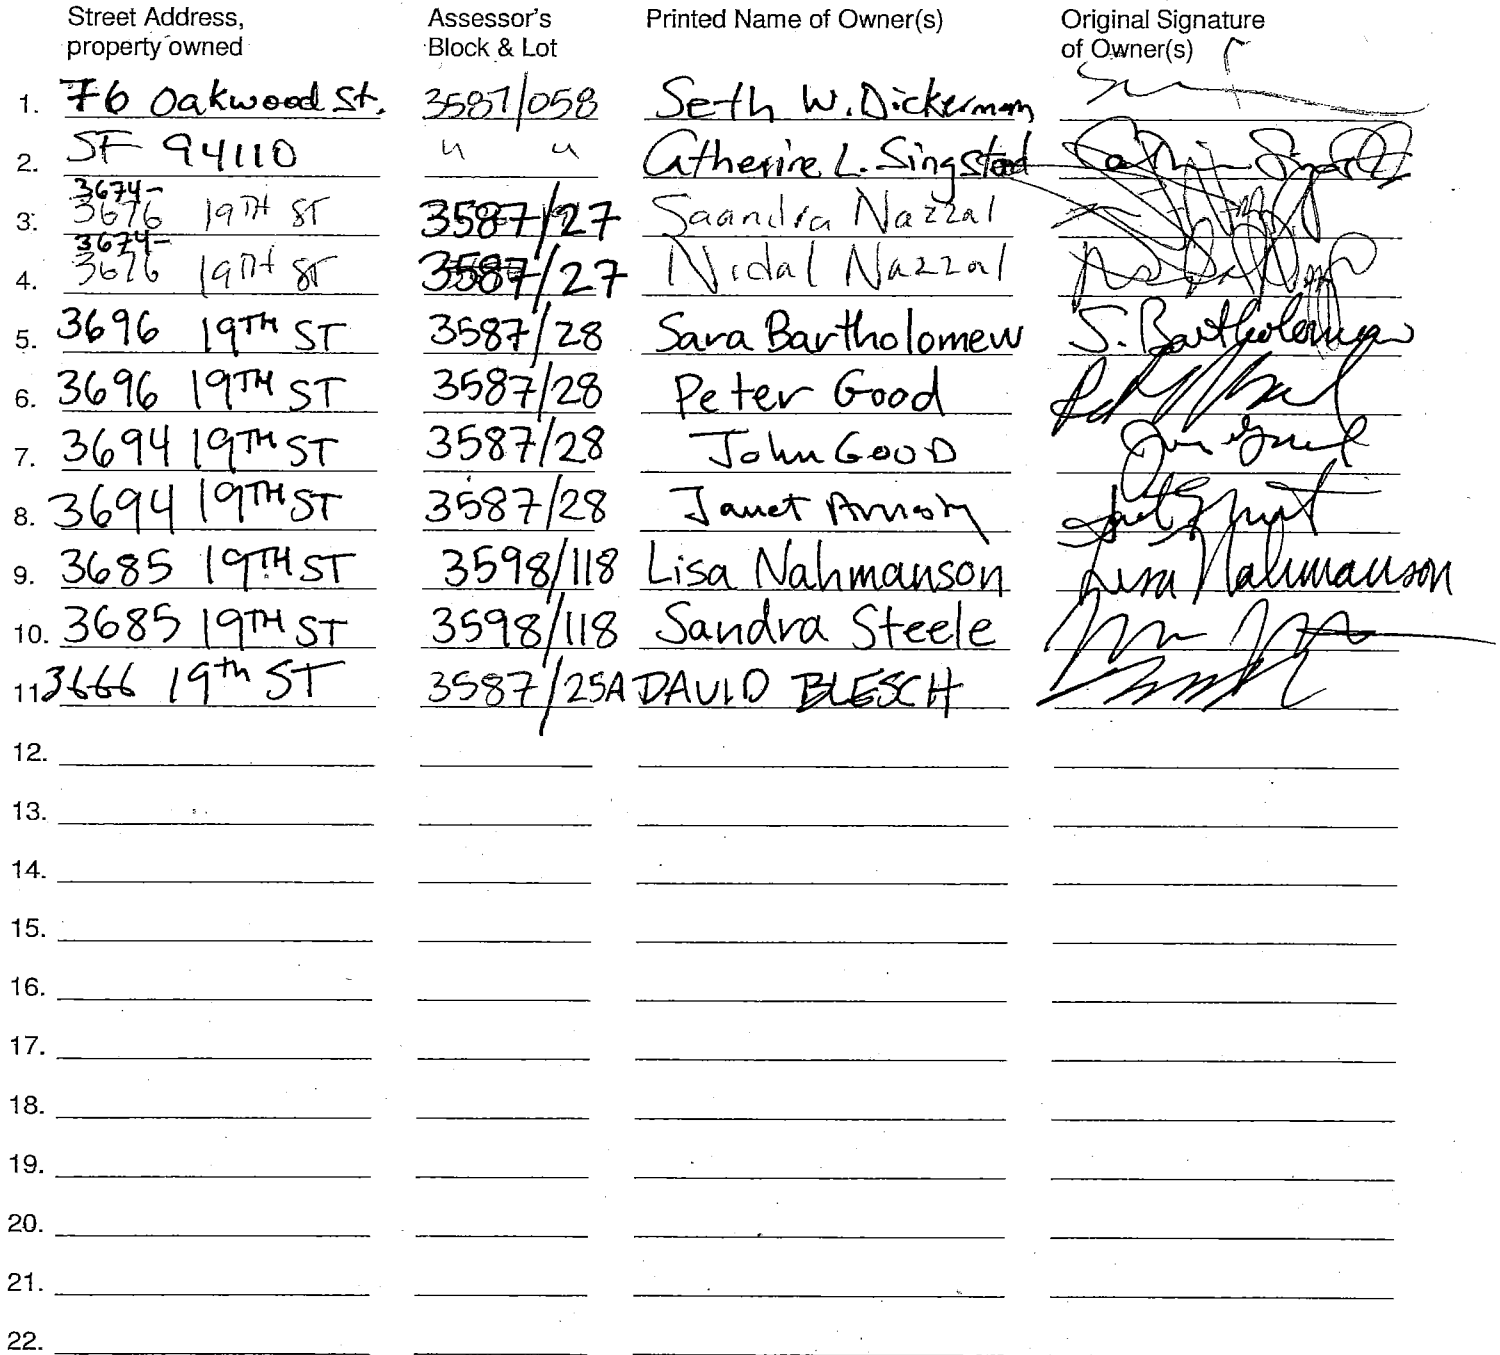 Street Address, property owned Assessor's Block & Lot Printed Name of Owner(s) Original Signature of Owner(s)
1. 76 Oakwood St. 3587/058 Seth W. Dickerman
2. SF 94110 " " Catherine L. Singstad
3. 3674-3676 19TH ST 3587/27 Saandra Nazzal
4. 3674-3676 19TH ST 3587/27 Nidal Nazzal
5. 3696 19TH ST 3587/28 Sara Bartholomew S. Bartholomew
6. 3696 19TH ST 3587/28 Peter Good
7. 3694 19TH ST 3587/28 John Good
8. 3694 19TH ST 3587/28 Janet
9. 3685 19TH ST 3598/118 Lisa Nahmanson Lisa Nahmanson
10. 3685 19TH ST 3598/118 Sandra Steele
11. 3666 19th ST 3587/25A DAVID BLESCH
12.
13.
14.
15.
16.
17.
18.
19.
20.
21.
22.